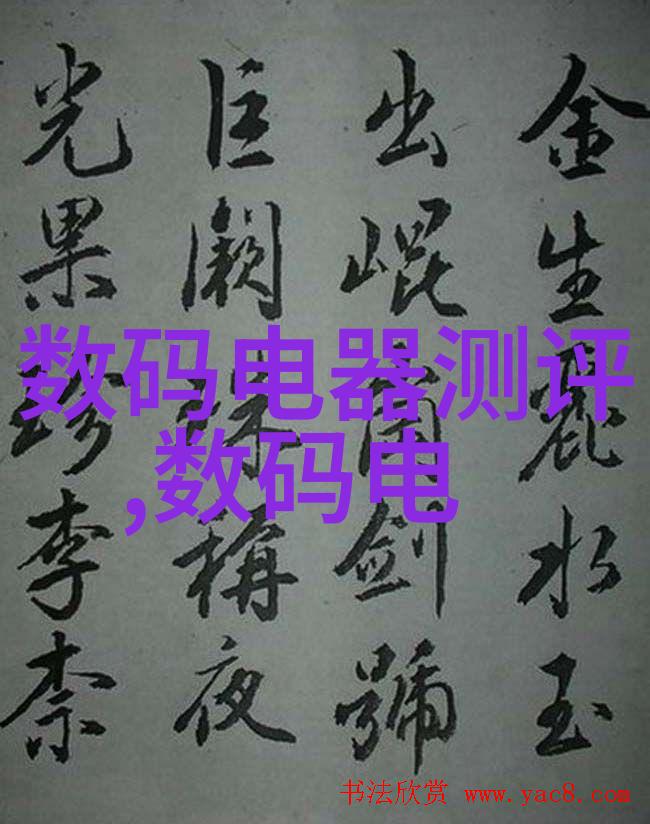 金生麗水玉
出崐岡劍號
巨闕珠稱夜
光果珍李柰
数码电器测评
,数码电
书法欣赏 www.yac8.com